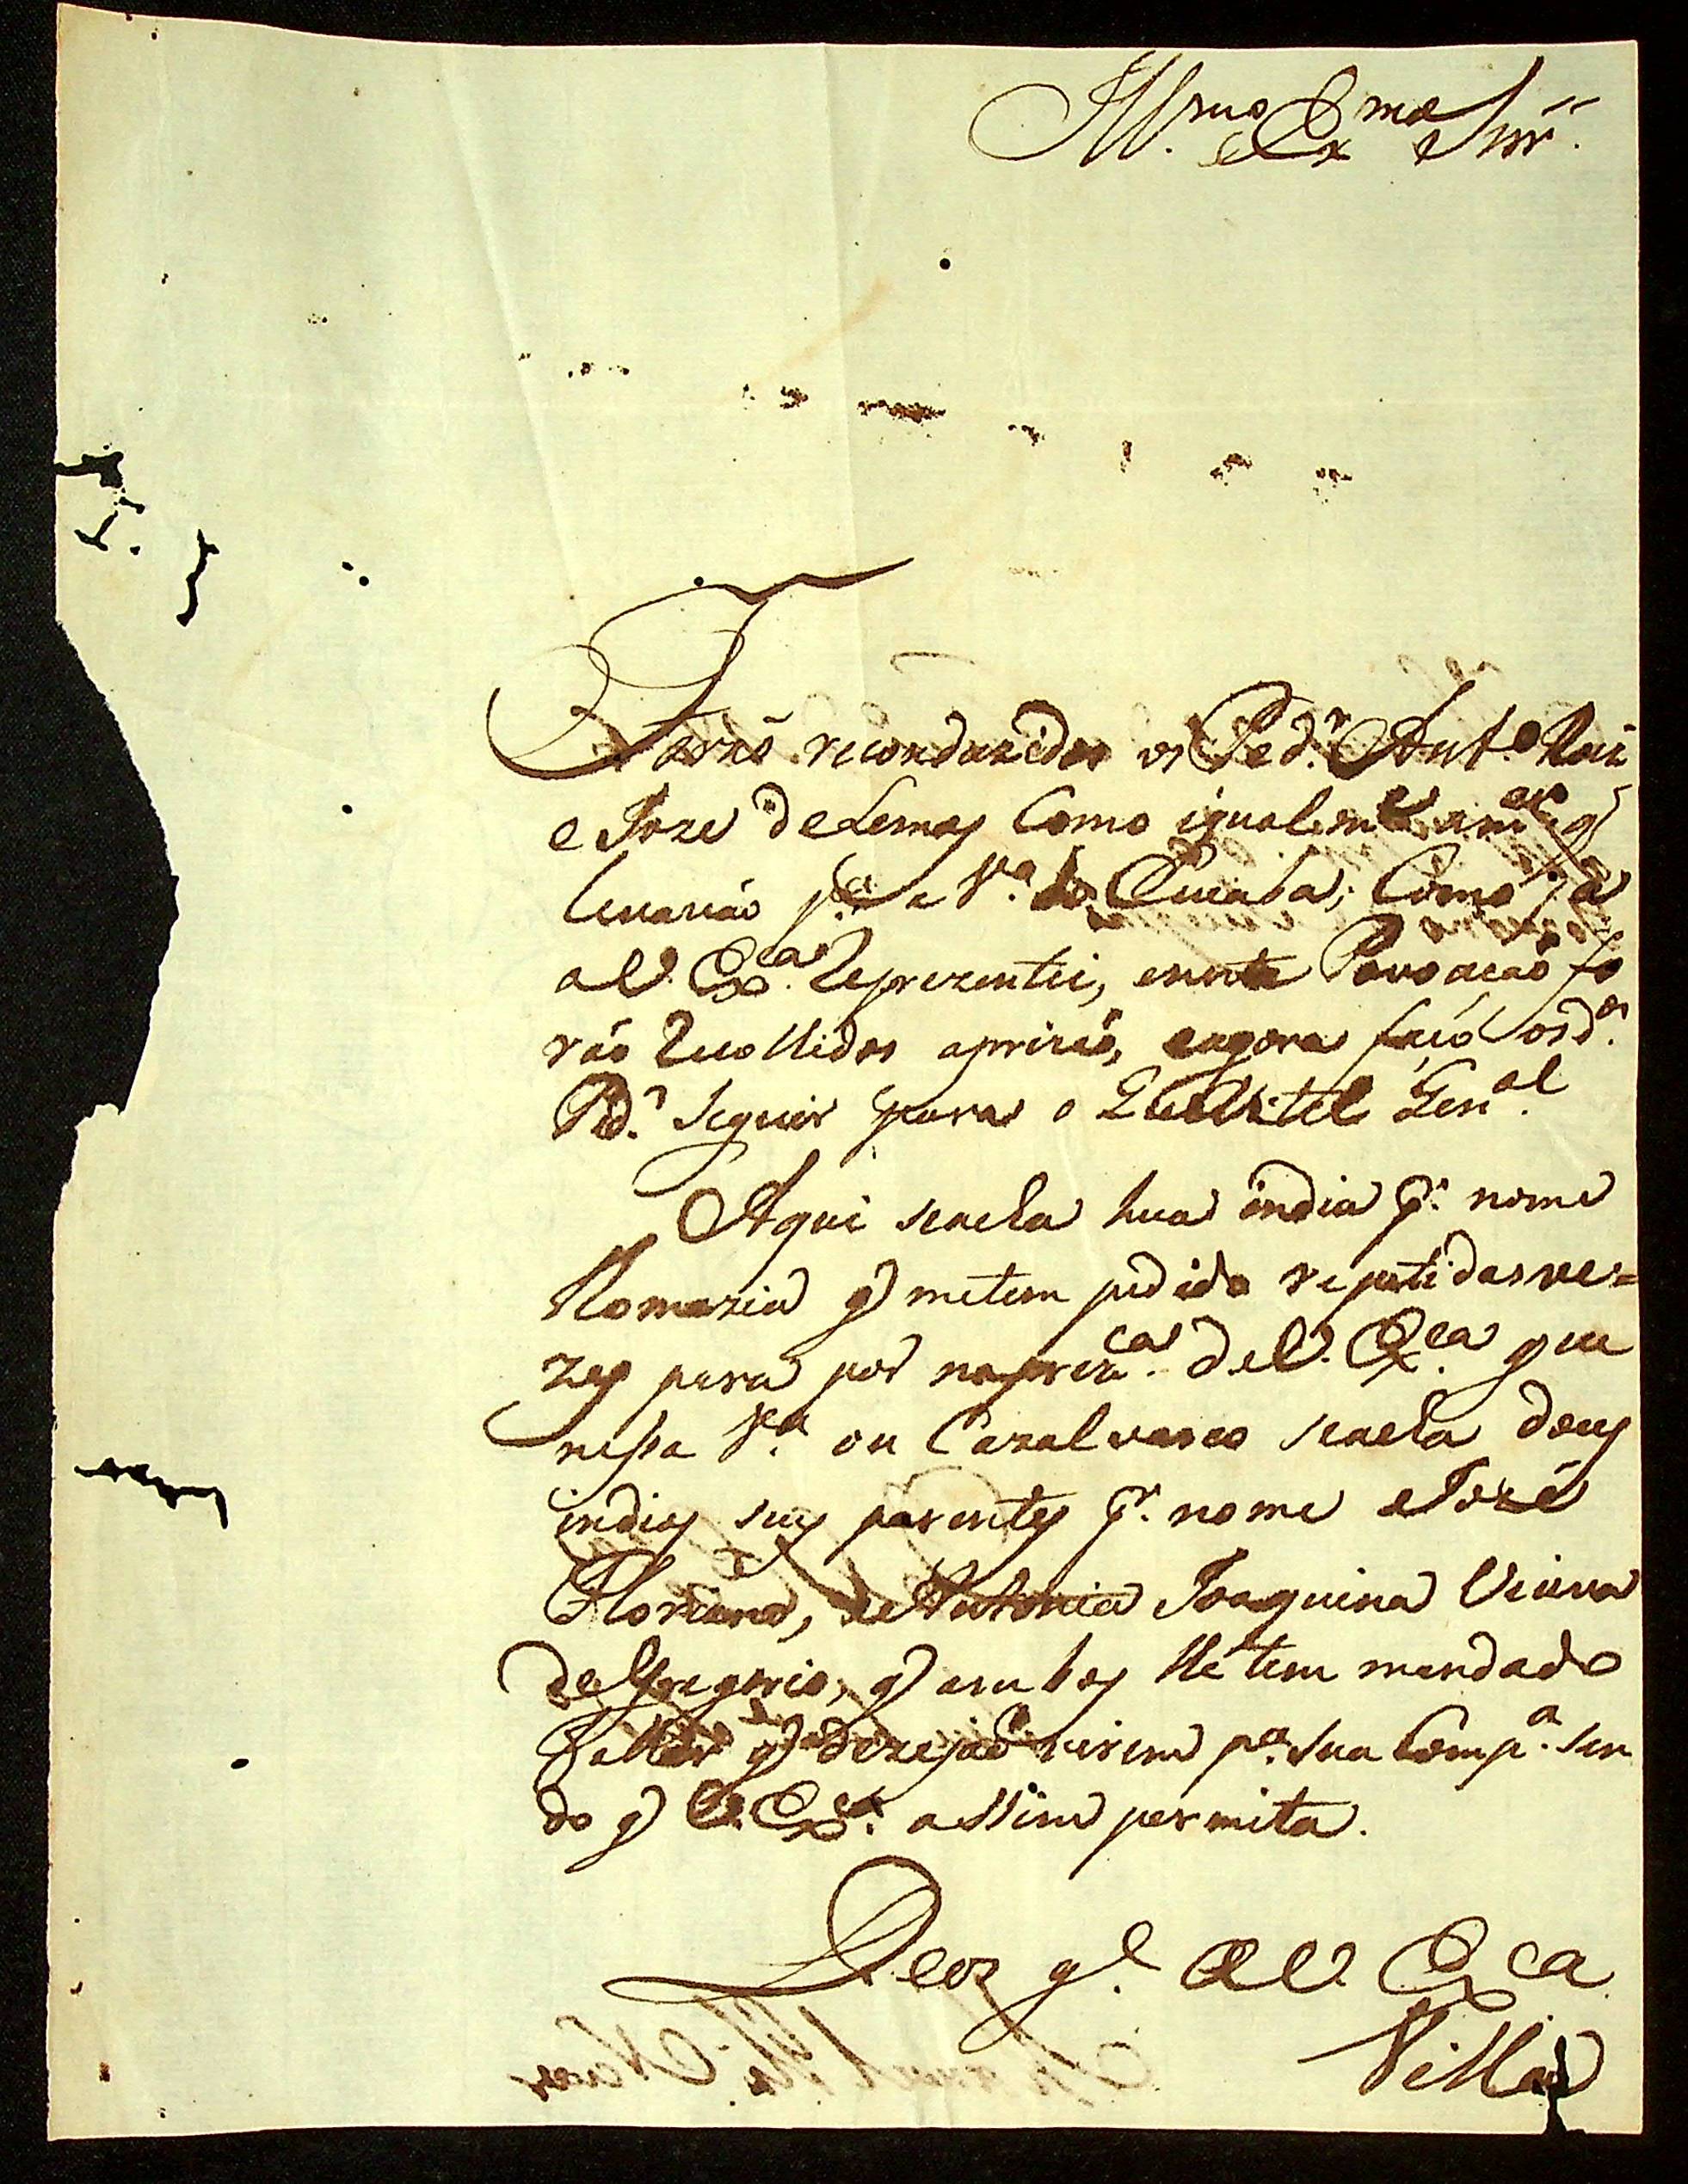 Ill.mo e Ex.mo Snr̃.
Forão reconduzidos os Ped.r Ant.o
e Joze de Lemos Como igualm.e q̃
levarão p.a a V.a do Cuiaba; Como já
a V. Ex.ca Reprezentei, e nesta Povoação fo
rão Recolhidos aprizaõ, eagora faço os d.os
Pd.r seguir para o Quartel Gen.al
Aqui seacha hua india p.r nome
Romazia q̃ metem pedido repetidasve=
zes para por naprez.ca de V. Ex.ca que
nessa V.a ou Cazalvasco seacha dous
indios seus parentes p.r nome Jozé
Floriano, e Antonia Joaquina Viuva
de Gregorio, q̃ ambos lhetem mandado
q̃ dezejaõ virem p.a sua Comp.a sen
do q̃ V. Ex.ca assim permita.
Deos g.e a V. Ex.ca
Villa